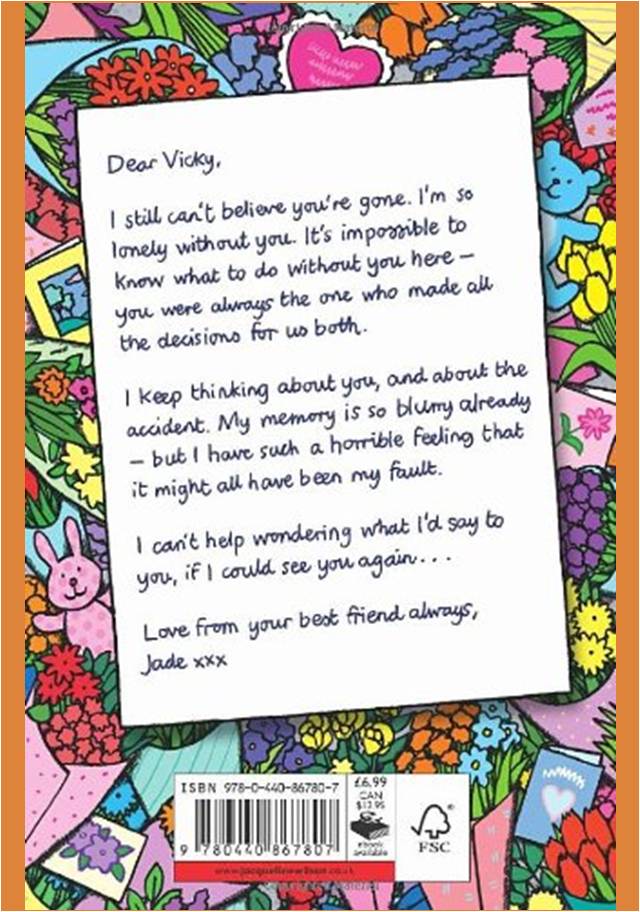 Dear Vicky,
I still can't believe you're gone. I'm so
lonely without you. It's impossible to
know what to do without you here –
you were always the one who made all
the decisions for us both.
I keep thinking about you, and about the
accident. My memory is so blurry already
– but I have such a horrible feeling that
it might all have been my fault.
I can't help wondering what I'd say to
you, if I could see you again...
Love from your best friend always,
Jade xxx
ISBN 978-0-440-86780-7
£6.99
CAN
$12.95
ebook
available
9 780440 867807
FSC
www.jacquelinewilson.co.uk